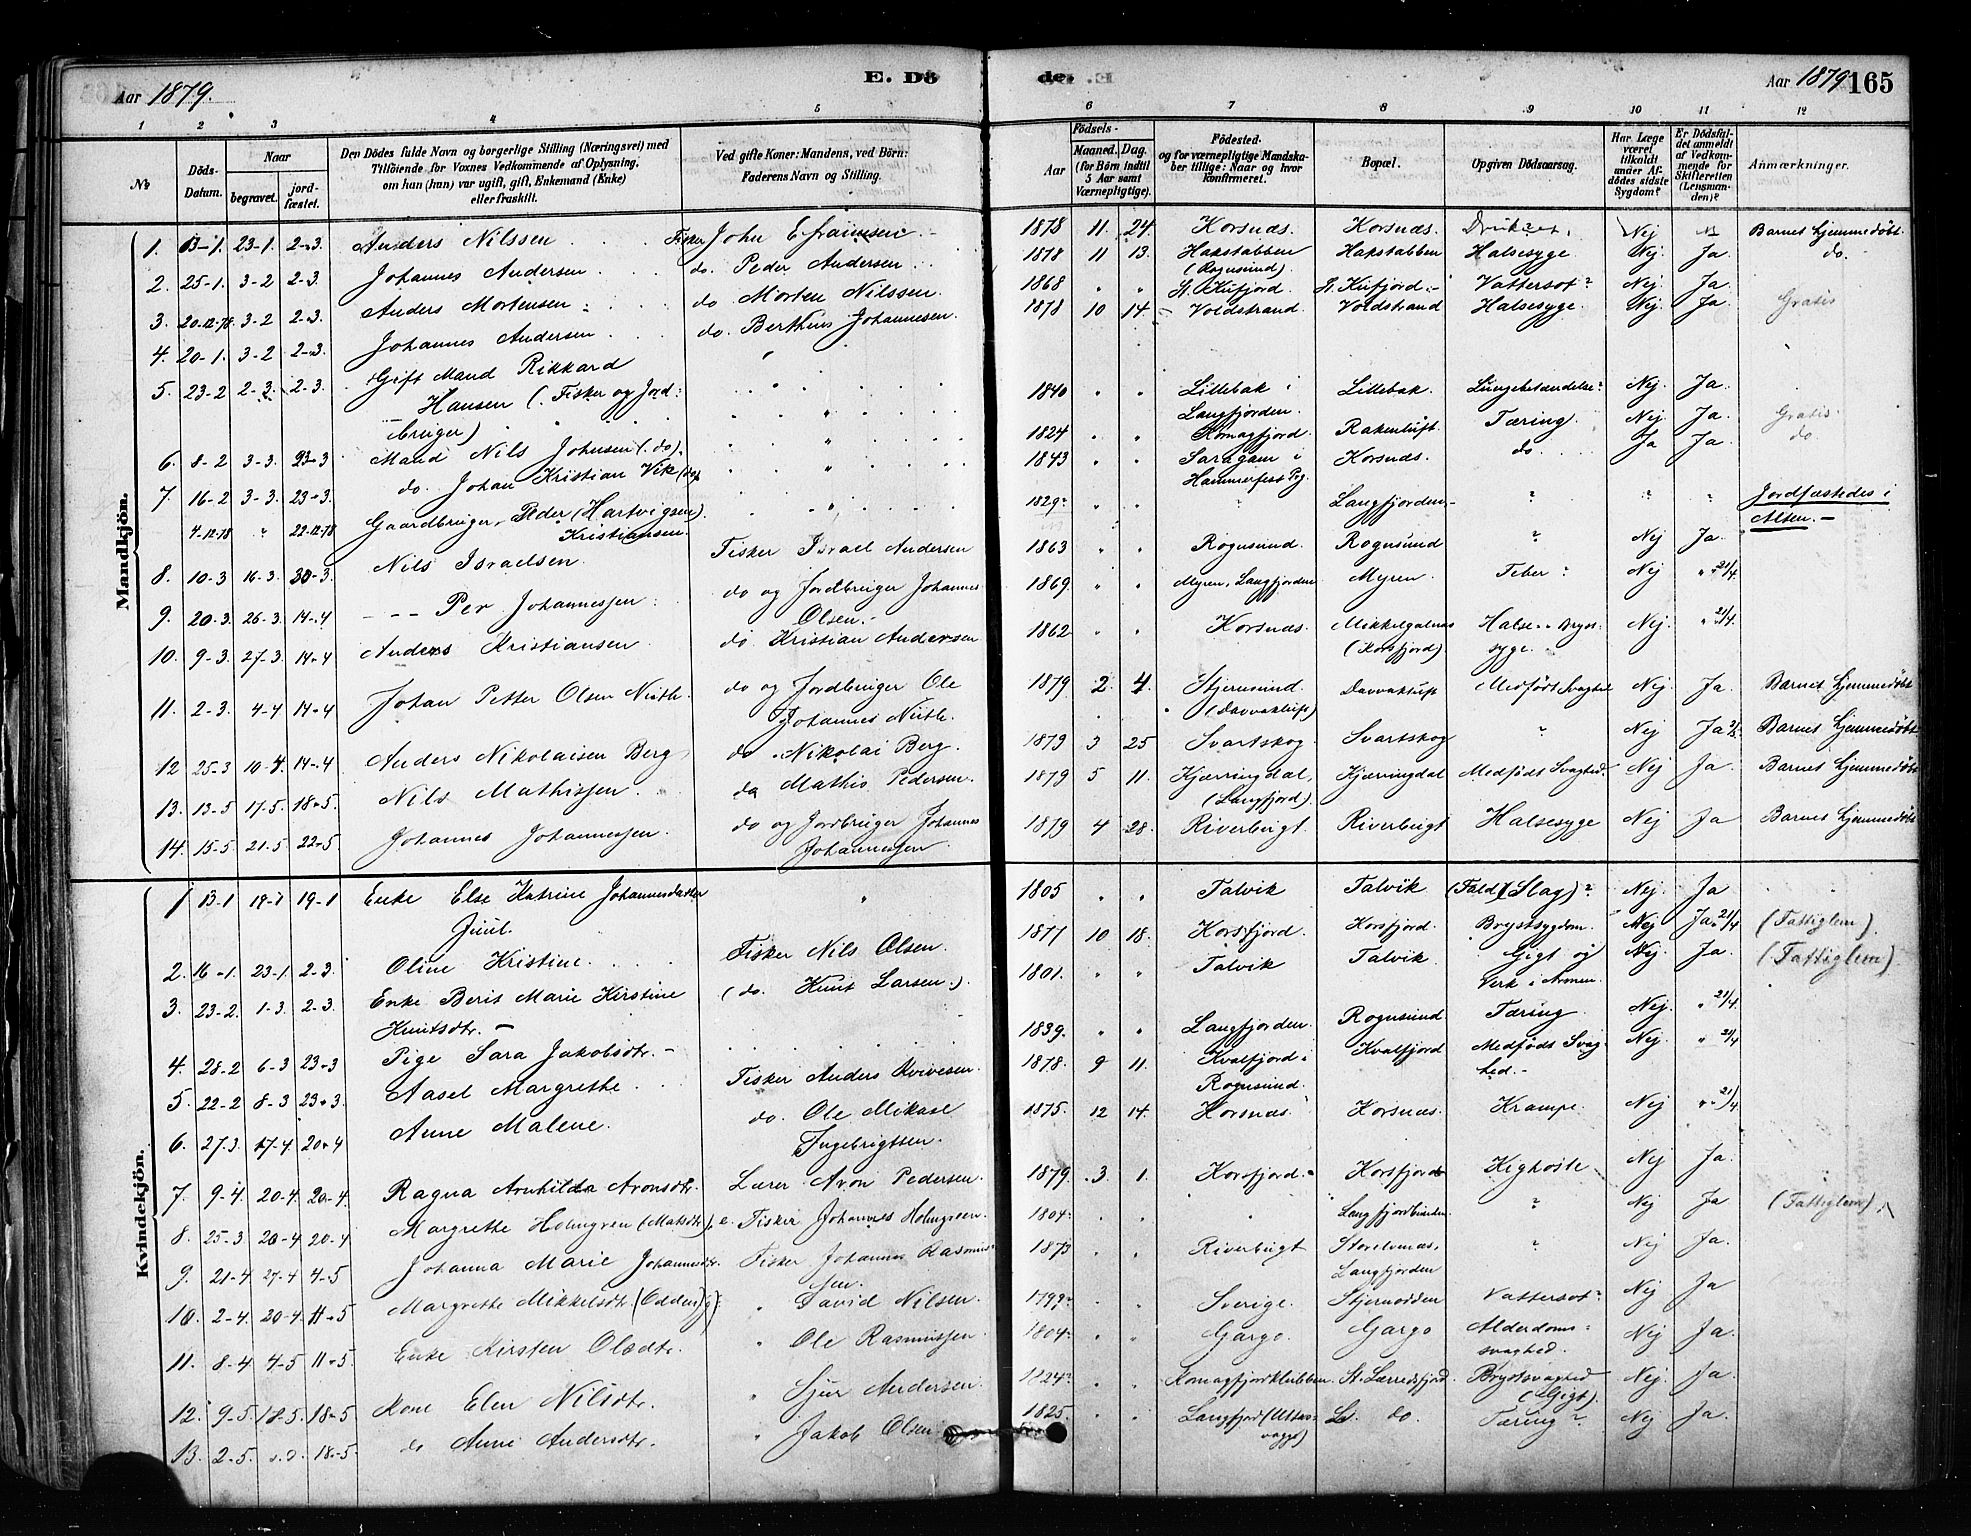 Aar 1879.
E. Dö
de.
Aar 1879 165
1 2 3 4 5 6 7 8 9 10 11 12
No
Döds-Datum.
Naar
begravet.
jordfæstet.
Den Dödes fulde Navn og borgerlige Stilling (Næringsvei) med Tilföiende for Voxnes Vedkommende af Oplysning, om han (hun) var ugift, gift, Enkemand (Enke) eller fraskilt.
Ved gifte Koner: Mandens, ved Börn: Faderens Navn og Stilling.
Födsels-
Aar
Maaned. Dag.
(for Börn indtil 5 Aar samt Værnepligtige).
Födested.
og for værnepligtige Mandskaber tillige: Naar og hvor konfirmeret.
Bopæl.
Opgiven Dödsaarsag.
Har Læge været tilkaldt under Afdödes sidste Sygdom?
Er Dödsfaldet anmeldt af Vedkommende for Skifteretten (Lensmanden)?
Anmærkninger.
Mandkjön.
1. 13-1. 23-1. 2-3. Anders Nilssen Fisker John Efraimsen 1878 11. 24. Korsnæs. Korsnæs. Nej Barnet hjemmedöbt
2. 25-1. 3-2 2-3. Johannes Andersen do. Peder Andersen 1878 11 13. Hakstabben (Rognsund). Hakstabben Halsesyge. Nej. Ja do.
3. 20-12-78 3-2 2-3. Anders Mortensen do Morten Nilssen. 1868 " " St. Kufjord. St. Kufjord. Vattersot? Nej. Ja.
4. 20-1. 3-2 2-3. Johannes Andersen do. Berthins Johannesen. 1878 10 14 Voldstrand. Voldstrand Halsesyge. Nej. Ja. Gratis
5. 23-2 2-3. 2-3. Gift Mand Rikkard
Hansen (Fisker og Jord-
bruger) 1840 " " Lillebak i Langfjorden. Lillebak. Lungebetændelse? Nej. Ja.
6. 8-2 3-3. 23-3 Mand Nils Johnsen (do). 1824 " " Komagfjord. Rakenluft. Tæring. Nej. Ja. Gratis.
7. 16-2 3-3. 23-3. do. Johan Kristian Vik (do) 1843 " " Saragam i Hammerfest Pg. Korsnæs. do. Ja Ja. do.
4-12-78 " 22-12-78 Gaardbruger Peder (Hartvigsen)
Kristiansen. 1829? " Langfjorden ? " " Jordfæstedes i
Alten.
8. 10-3 16-3. 30-3. Nils Israelsen Fisker Israel Andersen 1863 " " Rognsund. Rognsund ? Nej Ja.
9. 20-3. 26-3. 14-4 Per Johannessen do og Jordbruger Johannes
Olsen. 1869 " " Myren, Langfjorden Myren. Feber? Nej " 21/4.
10. 9-3. 27-3. 14-4 Anders Kristiansen do Kristian Andersen 1862 " " Korsnæs. (Korsfjord) Halse- Bryst-
syge. Nej. " 21/4.
11. 2-3. 4-4 14-4 Johan Petter Olsen do og Jordbruger Ole
Johannes 1879 2 4. Stjernsund. (Davvakluft) Davvakluft Medfödt Svaghed Nej. Ja. Barnet hjemmedöbt
12 25-3 10-4 14-4. Anders Nikolaisen Berg do Nikolai Berg. 1879 3 25 Svartskog Svartskog " Nej Ja Barnet hjemmedöbt
13. 13-5 17-5. 18-5. Nils Mathissen do Mathis Pedersen. 1879 5 11. Kjærringdal, (Langfjord). Kjærringdal Medföds Svaghed. Nej Ja. Barnet hjemmedöbt
14. 15-5 21-5 22-5 Johannes Johannessen. do og Jordbruger Johannes
Johannessen 1879 4 28. Riverbugt. Riverbugt Halsesyge Nej Ja Barnet hjemmedöbt
Kvindekjön.
1 13-1 19-1 19-1 Enke Else Katrine Johannesdatter
Juul. " 1805 " " Talvik Talvik (Fald) (Slag)? Nej. Ja
2. 16-1. 23-1. 2-3. Oline Kristine. Fisker Nils Olsen. 1877 10 18. Korsfjord. Korsfjord. Brystsygdom. Nej Ja. 21/4 (Fattiglem)
3. 23-2. 1-3. 2-3. Enke Berit Marie Kirstine
Knutsdtr. (do. Knut Larsen.) 1801. " " Talvik Talvik. Gigt og
Verk i Armen. Nej. Ja. (Fattiglem)
4. 28-2 6-3 23-3 Pige Sara Jakobsdtr. 1839. " " Langfjorden. Rognsund Tæring. Nej. " 21/4.
5. 22-2 8-3 23-3. Aasel Margrethe. Fisker Anders Kvivesen. 1878. 9 11. Kvalfjord i Rognsund. Kvalfjord Medföds Svag-
hed. Nej. " 21/4
6. 27-3. 17-4. 20-4 Anne Malene. do. Ole Mikael
Ingebrigtsen. 1875. 12 14. Korsnæs. Korsnæs. Krampe. Nej " 21/4
7. 9-4. 20-4. 20-4. Ragna Arnhilda Aronsdtr. Lærer Aron Pedersen. 1879. 3. 1. Korsfjord. Korsfjord Kighoste Nej Ja.
8. 25-3 20-4 20-4 Margrethe Holmgren (Matsdtr), e. Fisker Johannes Holmgreen. 1804. " " Langfjordbunden ? Nej Ja (Fattiglem)
9. 21-4 27-4 4-5 Johanna Marie Johannesdtr. Fisker Johannes Rasmus-
sen 1873 " " Riverbugt Storelvenæs, Langfjorden ? Nej Ja.
10. 2-4. 20-4. 11-5. Margrethe Mikkelsdtr. (Odden) g. " David Nilsen. 1799? " Sverige. Stjernodden Vattersot? Nej Ja
11. 8-4 4-5 11-5. Enke Kirsten Olsdtr. " Ole Rasmussen. 1804? " " Gargo. Gargo Alderdoms-
svaghed. Nej Ja.
12. 9-5. 18-5. 18-5 Kone Elen Nilsdtr. " Sjur Andersen 1824? " " Komagfjordklubben St. Lærredsfjord. Brystsvaghed
(Gigt). Nej. Ja.
13. 2-5. s.d. 18-5. do Anne Andersdtr. " Jakob Olsen 1825. " " Langfjord L. do. Tæring? Nej Ja.